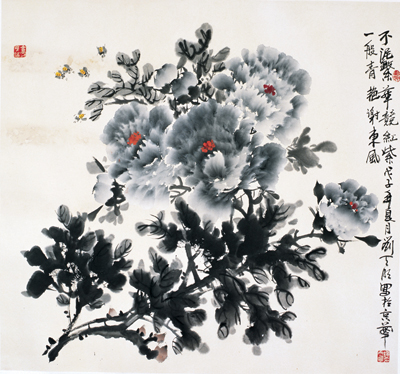 不泥繁華競紅紫戊子年夏月劉天寫於京華
一般青艷謝東風